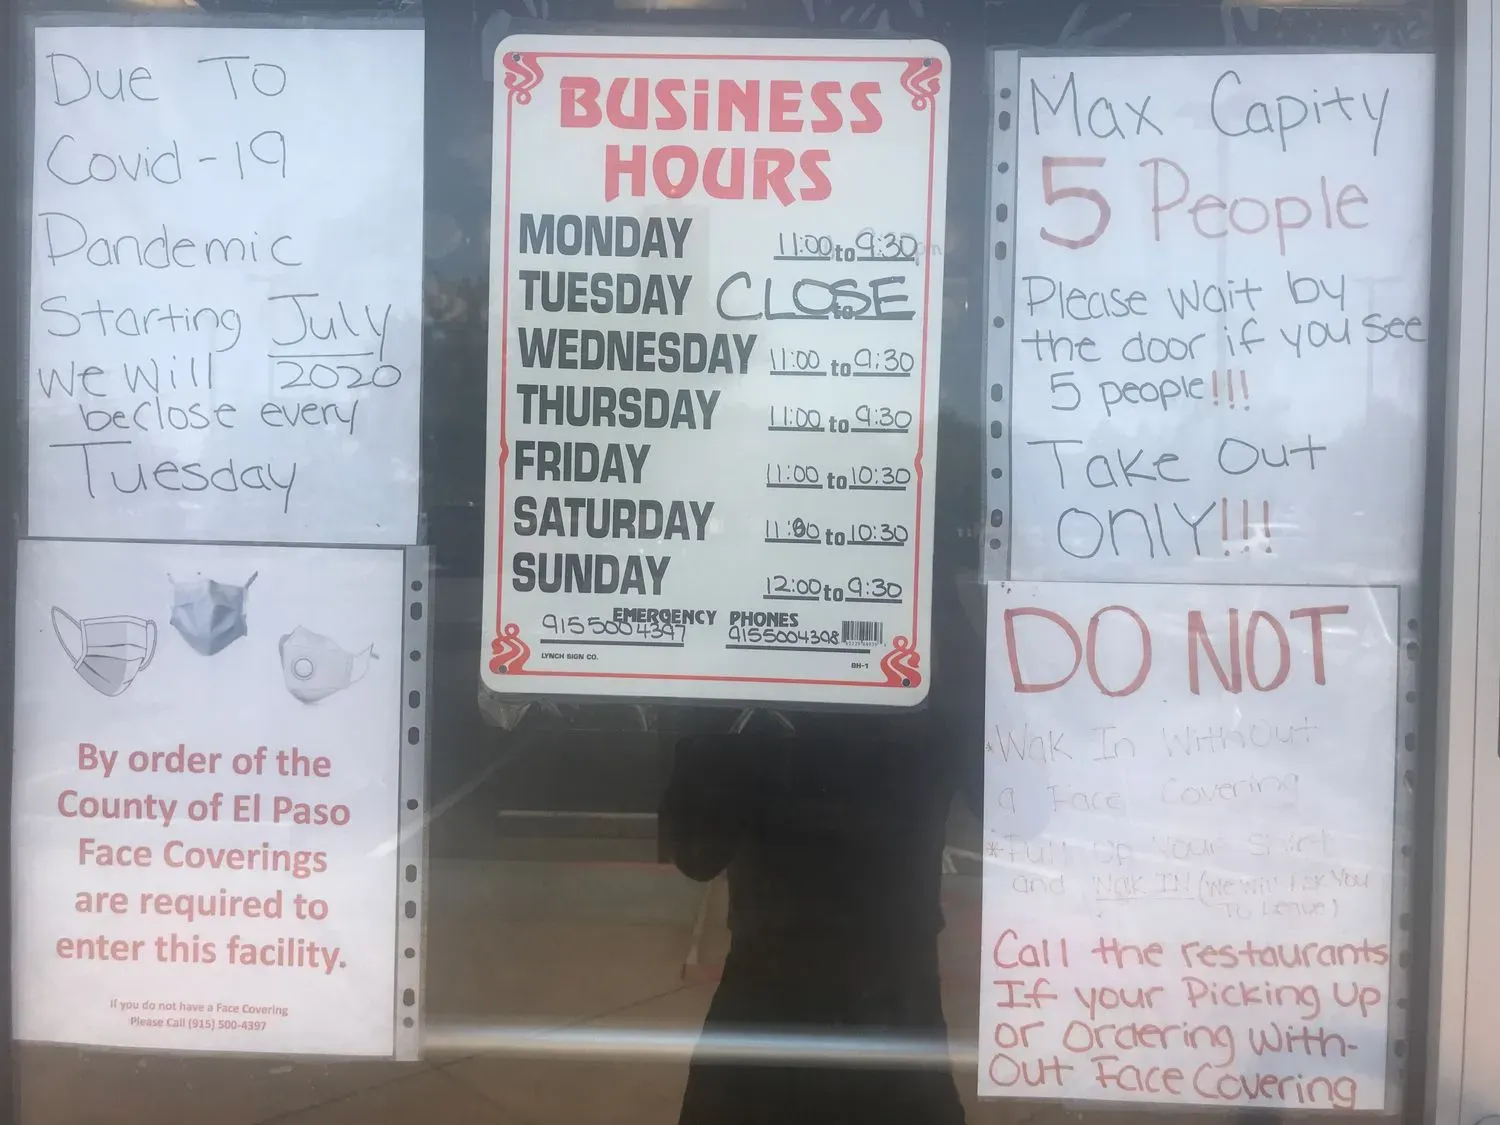 Due To
Covid-19
Pandemic
Starting July
we will 2020
be close every
Tuesday
By order of the
County of El Paso
Face Coverings
are required to
enter this facility.
If you do not have a Face Covering
Please Call (915) 500-4397
BUSiNESS
HOURS
MONDAY 11:00 to 9:30
TUESDAY CLOSE to
WEDNESDAY 11:00 to 9:30
THURSDAY 11:00 to 9:30
FRIDAY 11:00 to 10:30
SATURDAY 11:00 to 10:30
SUNDAY 12:00 to 9:30
EMERGENCY PHONES
9155004397 9155004398
LYNCH SIGN CO. BH-1
Max Capity
5 People
Please wait by
the door if you see
5 people!!!
Take Out
ONLY!!!
DO NOT
*Wak In Without
a Face Covering
*Pull Up Your Shirt
and Wak IN (We Will Ask You
To Leave)
Call the restaurants
If your Picking Up
or Ordering With-
Out Face Covering